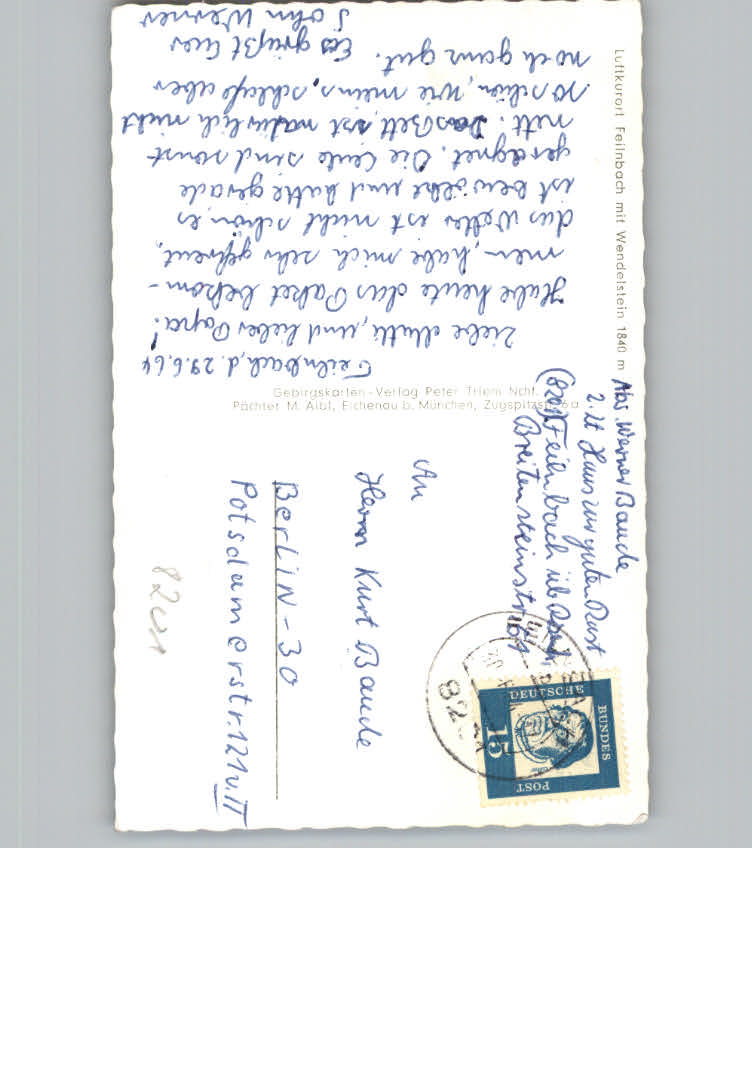 Feilnbach, d. 29.6.64
Liebe Mutti, und lieber Papa!
Habe heute das Paket bekom-
men, habe mich sehr gefreut,
das Wetter ist nicht schön, es
ist bewölkt und hatte gerade
geregnet. Die Leute sind sonst
nett. Das Bett ist natürlich nicht
so schön, wie meins, schlafe aber
noch ganz gut. Es grüßt Euer
Sohn Werner
Luftkurort Feilnbach mit Wendelstein 1840 m
Gebirgskarten-Verlag Peter Triem Nchf.
Pächter M. Aibl, Eichenau b. München, Zugspitzstr. 6a
Abs. Werner Baude
z. Zt Haus zur guten Rast
(8201) Feilnbach üb
Breitensteinstr
DEUTSCHE
BUNDES
POST
15
An
Herrn Kurt Baude
Berlin-30
Potsdamerstr. 121 v. II